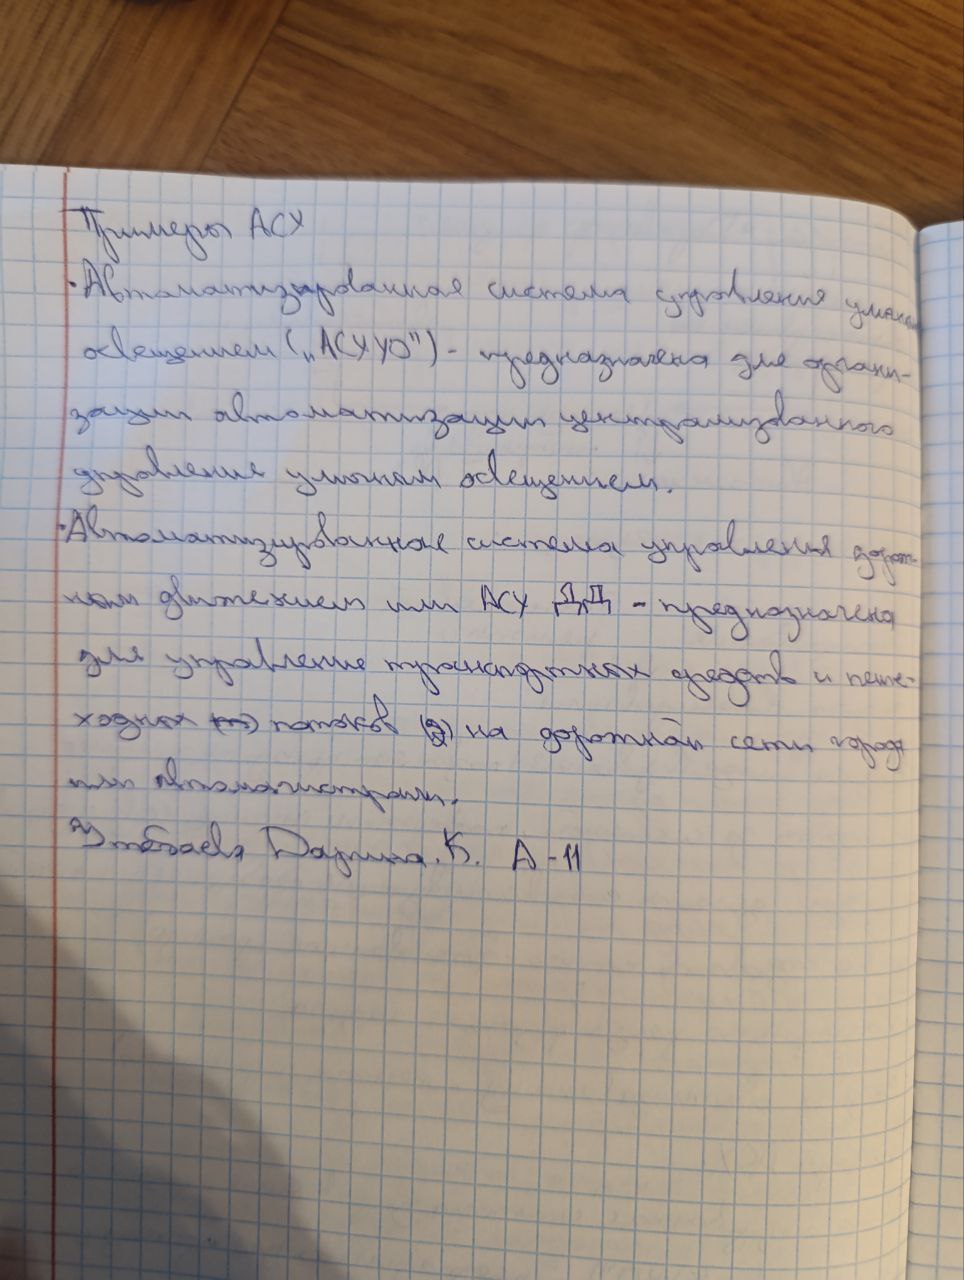 Примеры АСУ
·Автоматизированная система управления уличным
освещением („АСУУО") - предназначена для органи-
зации автоматизации централизованного
управления уличным освещением.
·Автоматизированная система управления дорож-
ным движением или АСУ ДД - предназначена
для управление транспортных средств и пеше-
ходных потоков на дорожной сети города
или автомагистрали.
Утебаева Дарина. К. А-11